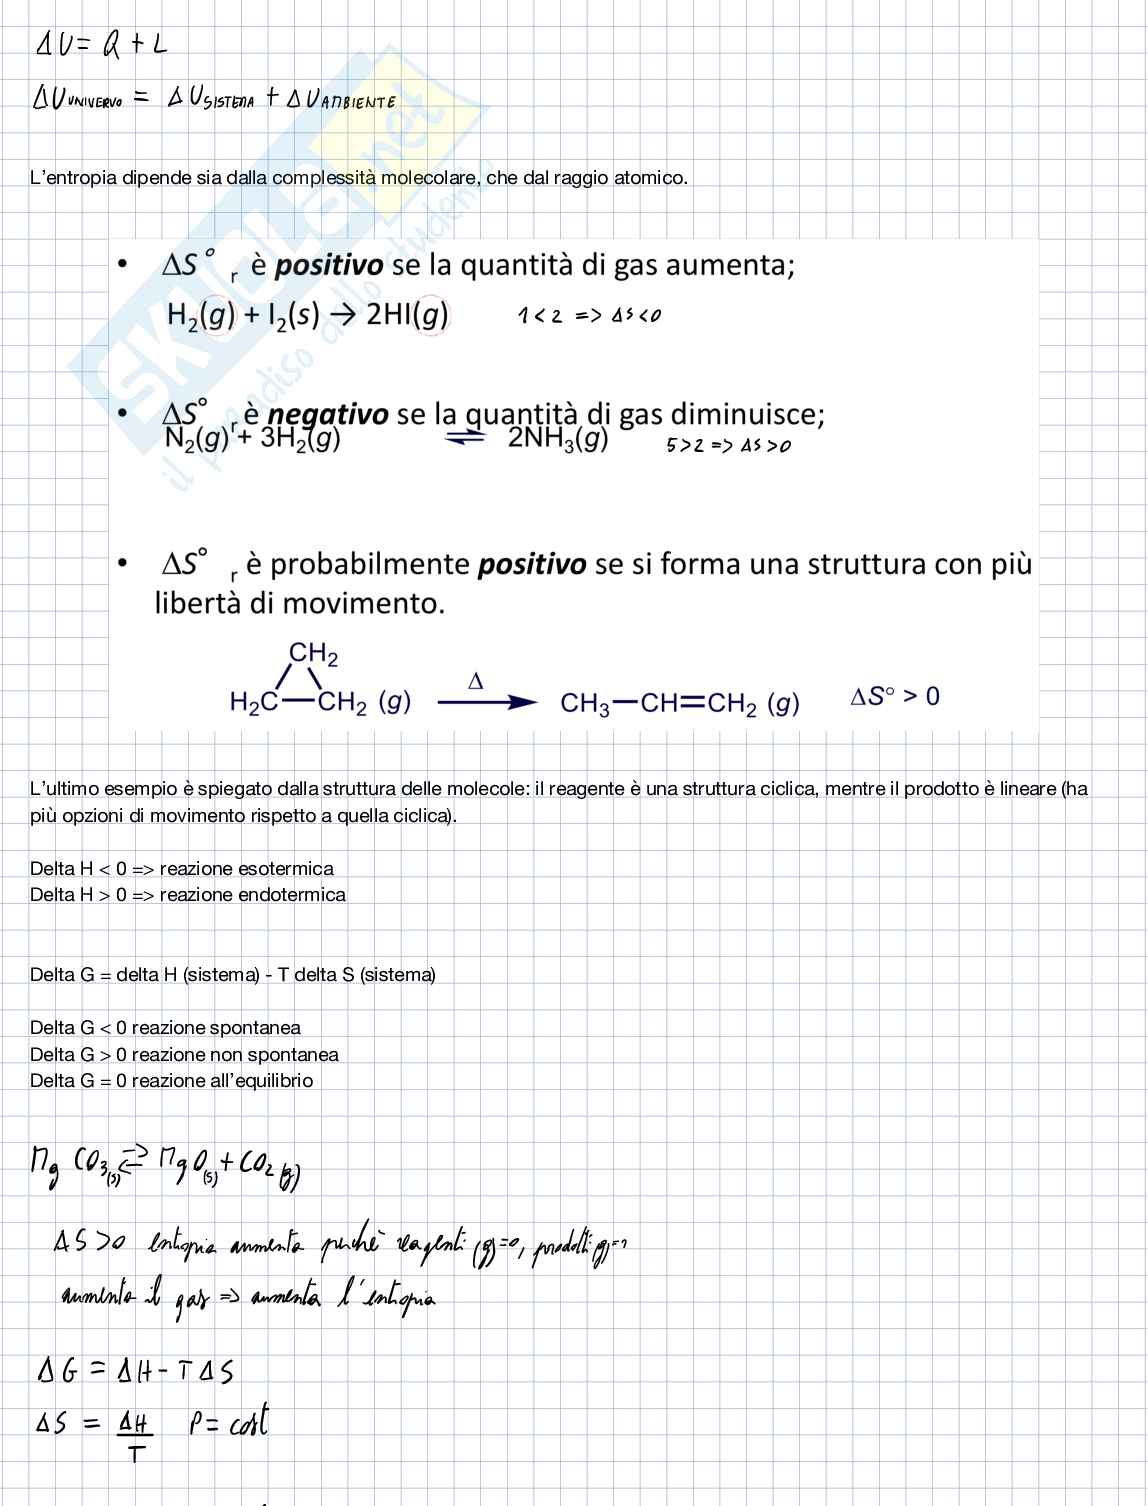 ΔU = Q + L
ΔU UNIVERVO = ΔU SISTEMA + ΔU AMBIENTE
SKUOLA.net
il paradiso dello studente
L'entropia dipende sia dalla complessità molecolare, che dal raggio atomico.
• ΔS°r è positivo se la quantità di gas aumenta;
H₂(g) + I₂(s) → 2HI(g) 1 < 2 => ΔS < 0
• ΔS°r è negativo se la quantità di gas diminuisce;
N₂(g) + 3H₂(g) ⇌ 2NH₃(g) 5 > 2 => ΔS > 0
• ΔS°r è probabilmente positivo se si forma una struttura con più
libertà di movimento.
CH₂
H₂C—CH₂ (g) Δ→ CH₃—CH=CH₂ (g) ΔS° > 0
L'ultimo esempio è spiegato dalla struttura delle molecole: il reagente è una struttura ciclica, mentre il prodotto è lineare (ha
più opzioni di movimento rispetto a quella ciclica).
Delta H < 0 => reazione esotermica
Delta H > 0 => reazione endotermica
Delta G = delta H (sistema) - T delta S (sistema)
Delta G < 0 reazione spontanea
Delta G > 0 reazione non spontanea
Delta G = 0 reazione all'equilibrio
Mg CO₃(s) ⇌ MgO(s) + CO₂(g)
ΔS > 0 entropia aumenta perché reagenti (g)=0, prodotti (g)=1
aumenta il gas => aumenta l'entropia
ΔG = ΔH - TΔS
ΔS = ΔH/T P = cost